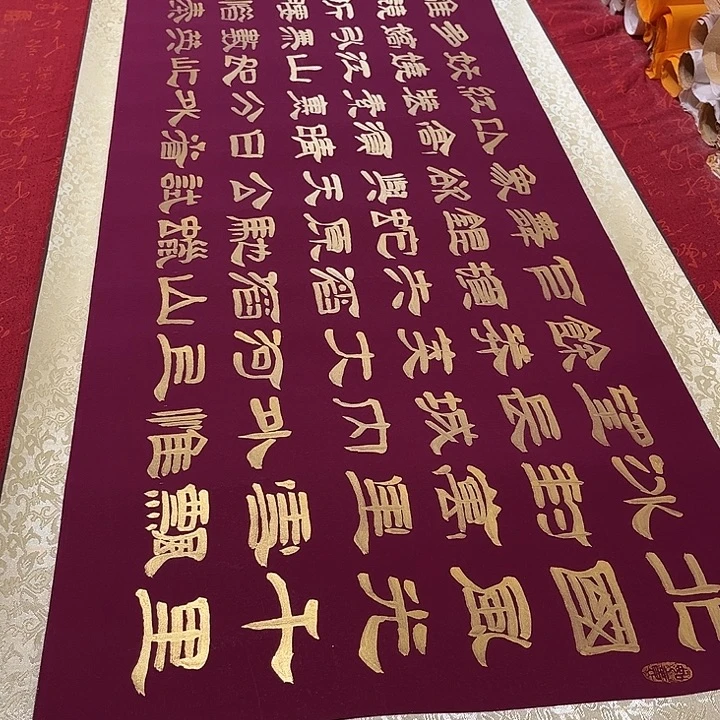 北國風光千里
冰封萬里雪飄
望長城內外惟
餘莽莽大河上
下頓失滔滔山
舞銀蛇原馳蠟
象欲與天公試
比高須晴日看
紅裝素裹分外
妖嬈江山如此
多嬌引無數英
雄競折腰惜秦